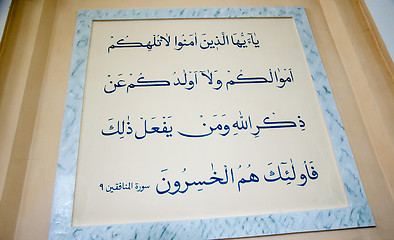 يَٰٓأَيُّهَا الَّذِينَ اٰمَنُوا لَا تُلْهِكُمْ
اَمْوَالُكُمْ وَلَآ اَوْلَٰدُكُمْ عَنْ
ذِكْرِ اللّٰهِ وَمَنْ يَفْعَلْ ذٰلِكَ
فَاُولٰٓئِكَ هُمُ الْخٰسِرُونَ سورة المنافقين ٩